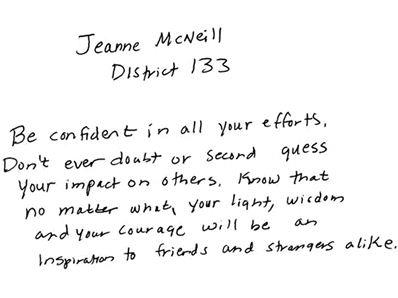 Jeanne McNeill
District 133
Be confident in all your efforts.
Don't ever doubt or second guess
your impact on others. Know that
no matter what, your light, wisdom
and your courage will be an
Inspiration to friends and strangers alike.